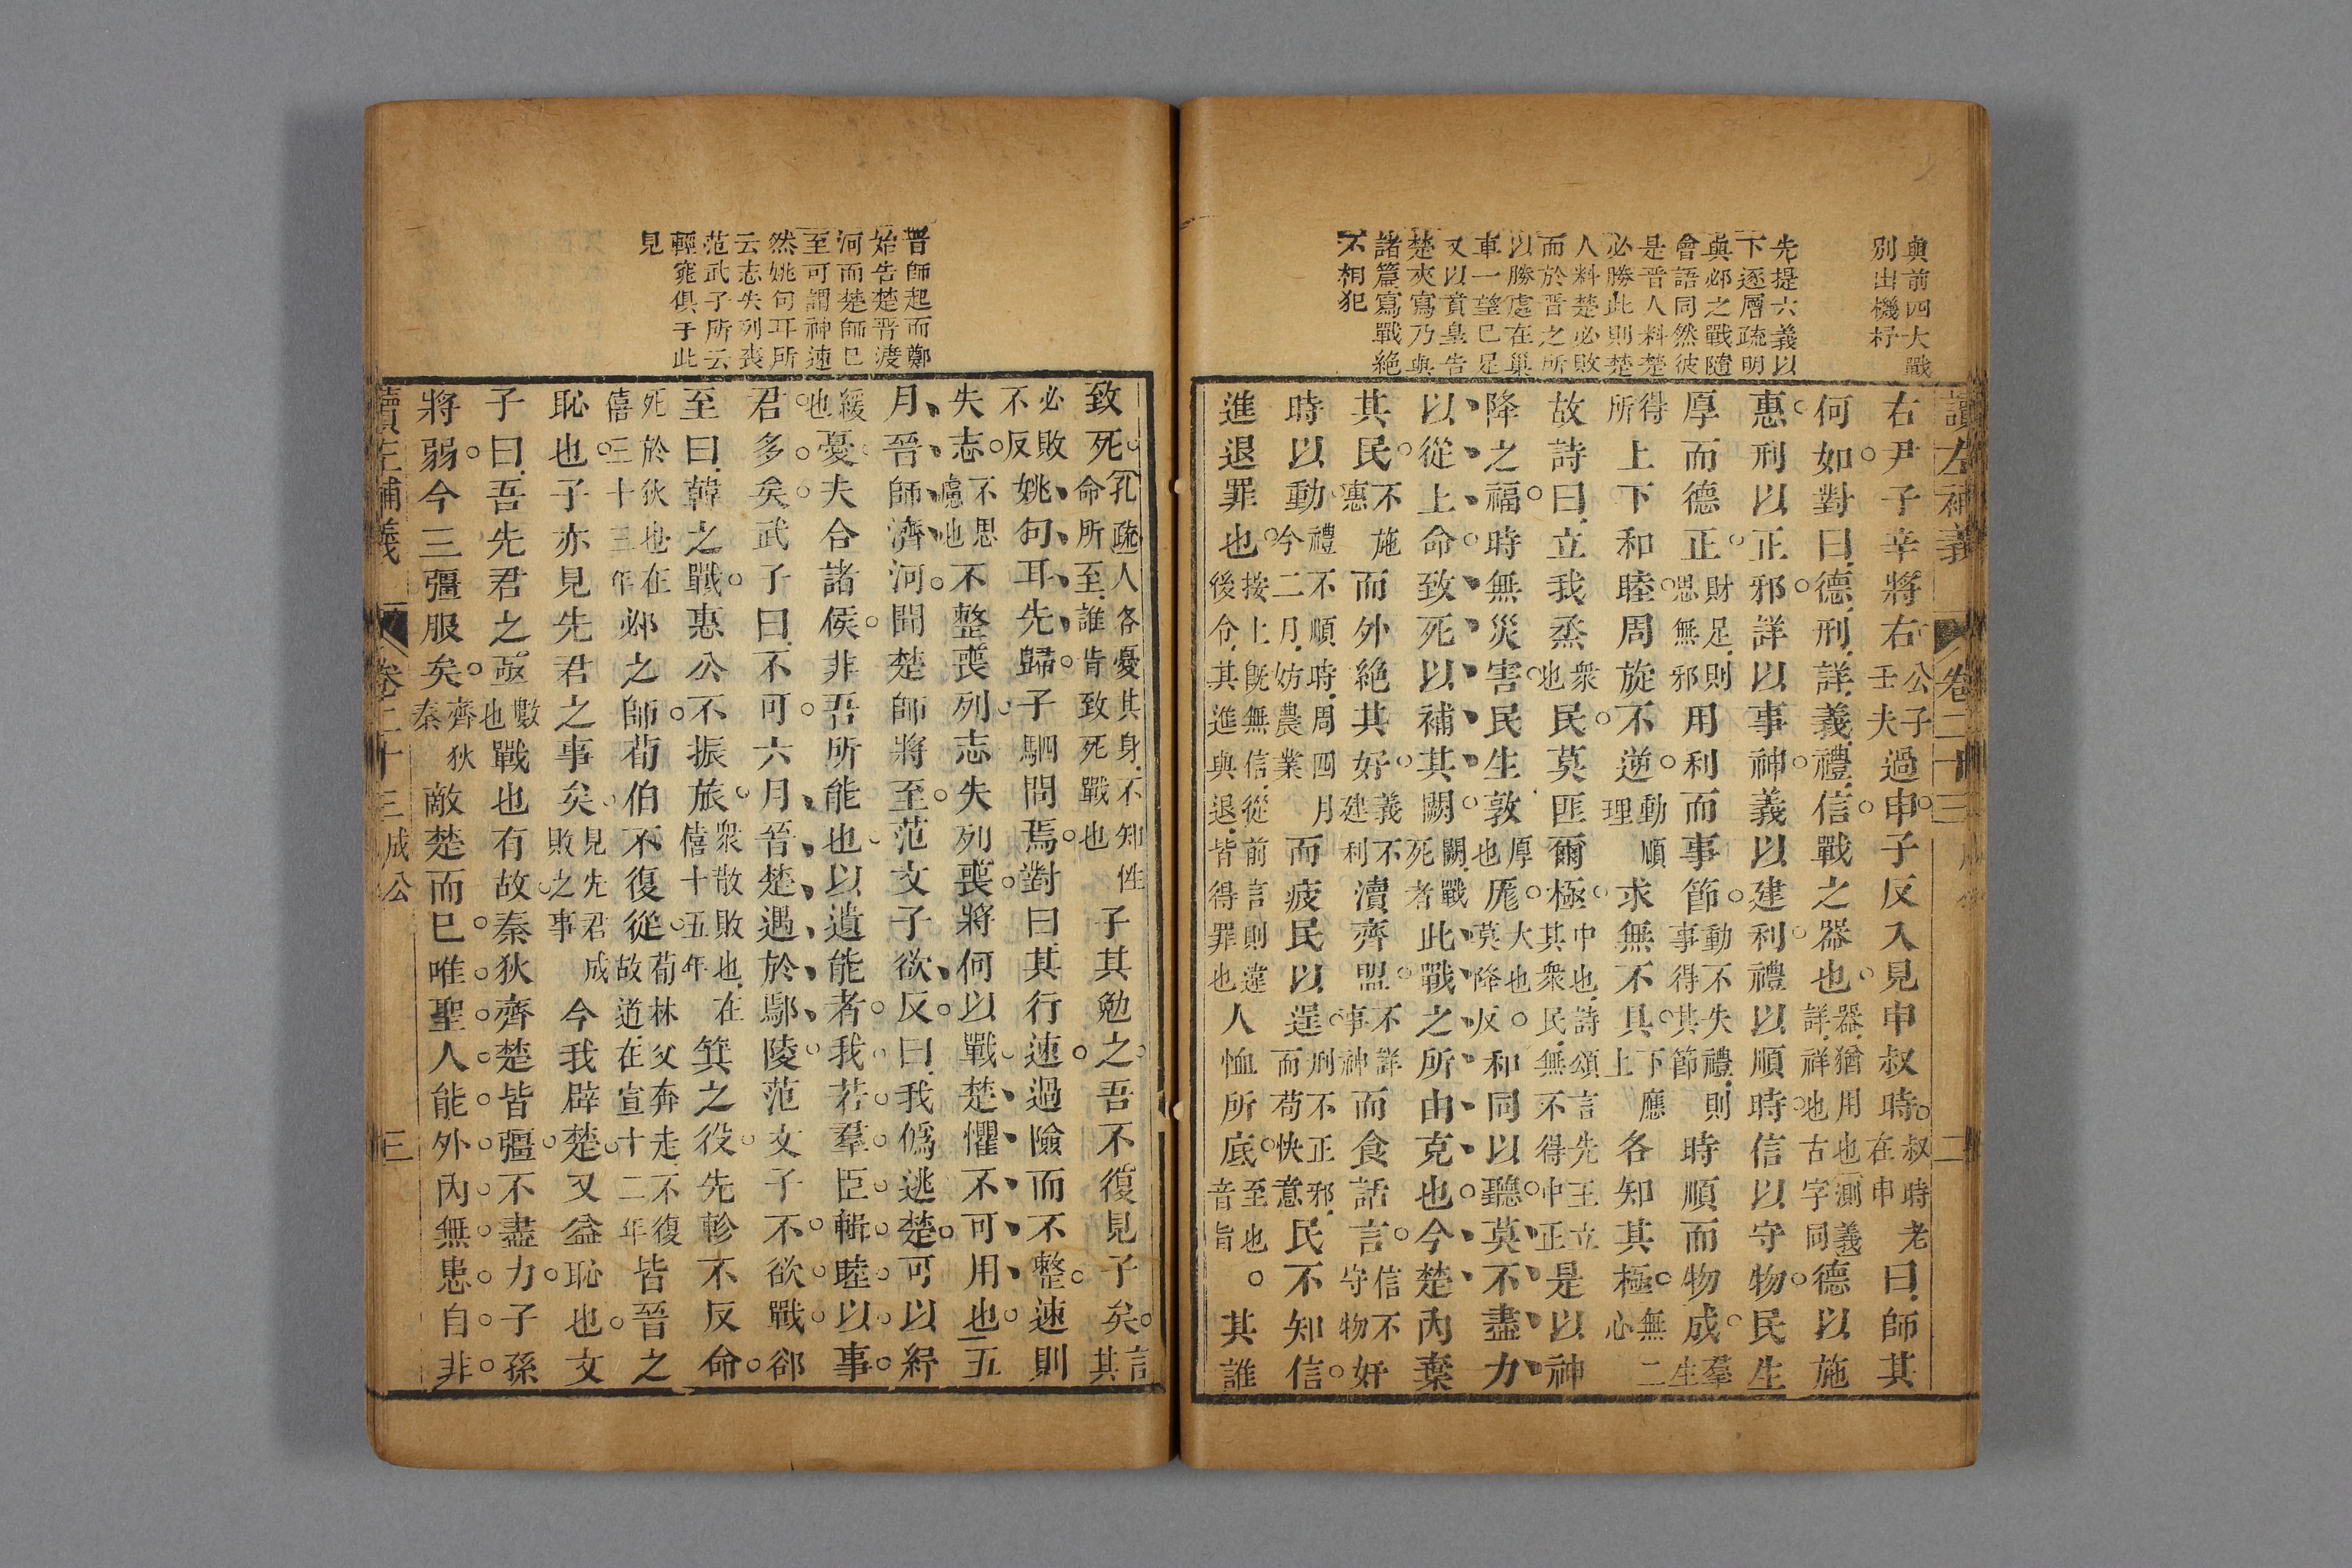 與前四大戰
別出機杼
先提六義以
下逐層疏明
與邲之戰隨
會語同然彼
是晋人料楚
必勝此則楚
人料楚必敗
而於晋之所
以勝處在巢
車一望已足
又以賁皇告
楚夾寫乃與
諸篇寫戰絕
不相犯
讀左補義 卷二十三 成公 二
右尹子辛將右公子壬夫過申子反入見申叔時叔時老在申曰師其
何如對曰德刑詳義禮信戰之器也器猶用也測義詳祥也古字同德以施
惠刑以正邪詳以事神義以建利禮以順時信以守物民生
厚而德正財足則思無邪用利而事節動不失禮則事得其節時順而物成羣生
得所上下和睦周旋不逆動順理求無不具下應上各知其極無二心
故詩曰立我烝眾也民莫匪爾極中也詩頌言先王立其眾民無不得中正是以神
降之福時無災害民生敦厚也厖大也莫降反和同以聽莫不盡力
以從上命致死以補其闕闕戰死者此戰之所由克也今楚內棄
其民不施惠而外絕其好義不建利瀆齊盟不詳事神而食話言信不守物奸
時以動禮不順時周四月今二月妨農業而疲民以逞刑不正邪而苟快意民不知信
進退罪也按上既無信從前言則違後令其進與退皆得罪也人恤所底至也音旨其誰
晋師起而鄭
始告楚晋渡
河而楚師已
至可謂神速
然姚句耳所
云志失列喪
范武子所云
輕窕俱于此
見
致死孔疏人各憂其身不知性命所至誰肯致死戰也子其勉之吾不復見子矣言其
必敗不反姚句耳先歸子駟問焉對曰其行速過險而不整速則
失志不思慮也不整喪列志失列喪將何以戰楚懼不可用也五
月晉師濟河聞楚師將至范文子欲反曰我偽逃楚可以紓
緩也憂夫合諸侯非吾所能也以遺能者我若羣臣輯睦以事
君多矣武子曰不可六月晉楚遇於鄢陵范文子不欲戰郤
至曰韓之戰惠公不振旅眾散敗也在僖十五年箕之役先軫不反命
死於狄也在僖三十三年邲之師荀伯不復從荀林父奔走不復故道在宣十二年皆晉之
恥也子亦見先君之事矣見先君成敗之事今我辟楚又益恥也文
子曰吾先君之亟數也戰也有故秦狄齊楚皆彊不盡力子孫
將弱今三彊服矣齊狄秦敵楚而已唯聖人能外內無患自非
讀左補義 卷二十三 成公 三